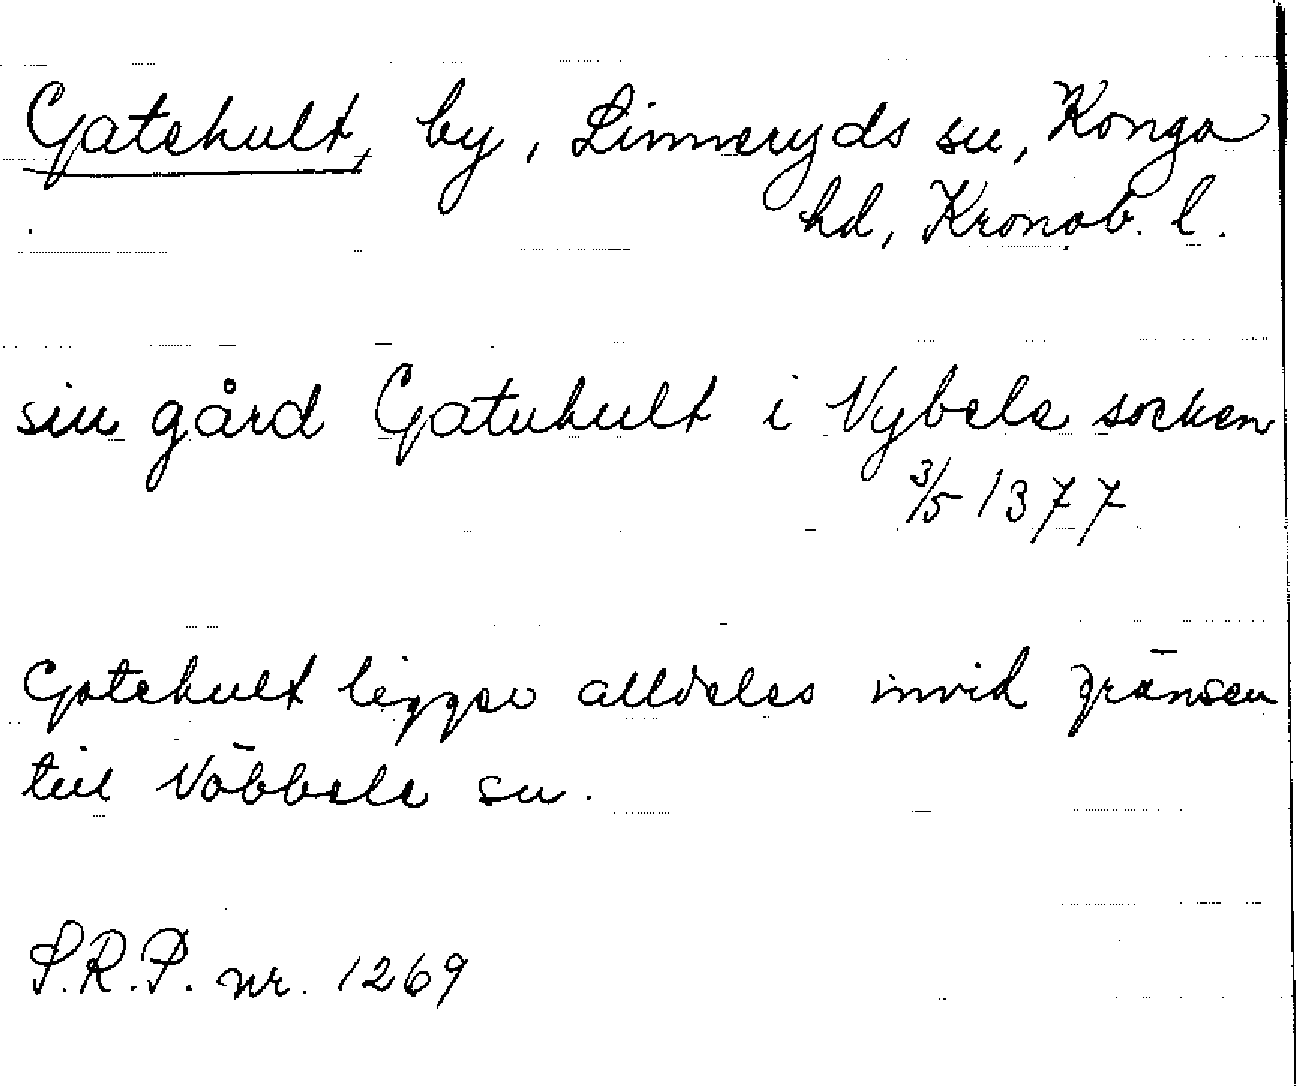 Gatehult, by, Linneryds sn, Konga
hd, Kronob. l.
sin gård Gatuhult i Vybele socken
3/5 1377
Gatehult ligger alldeles invid gränsen
till Nöbbele sn.
S.R.P. nr. 1269